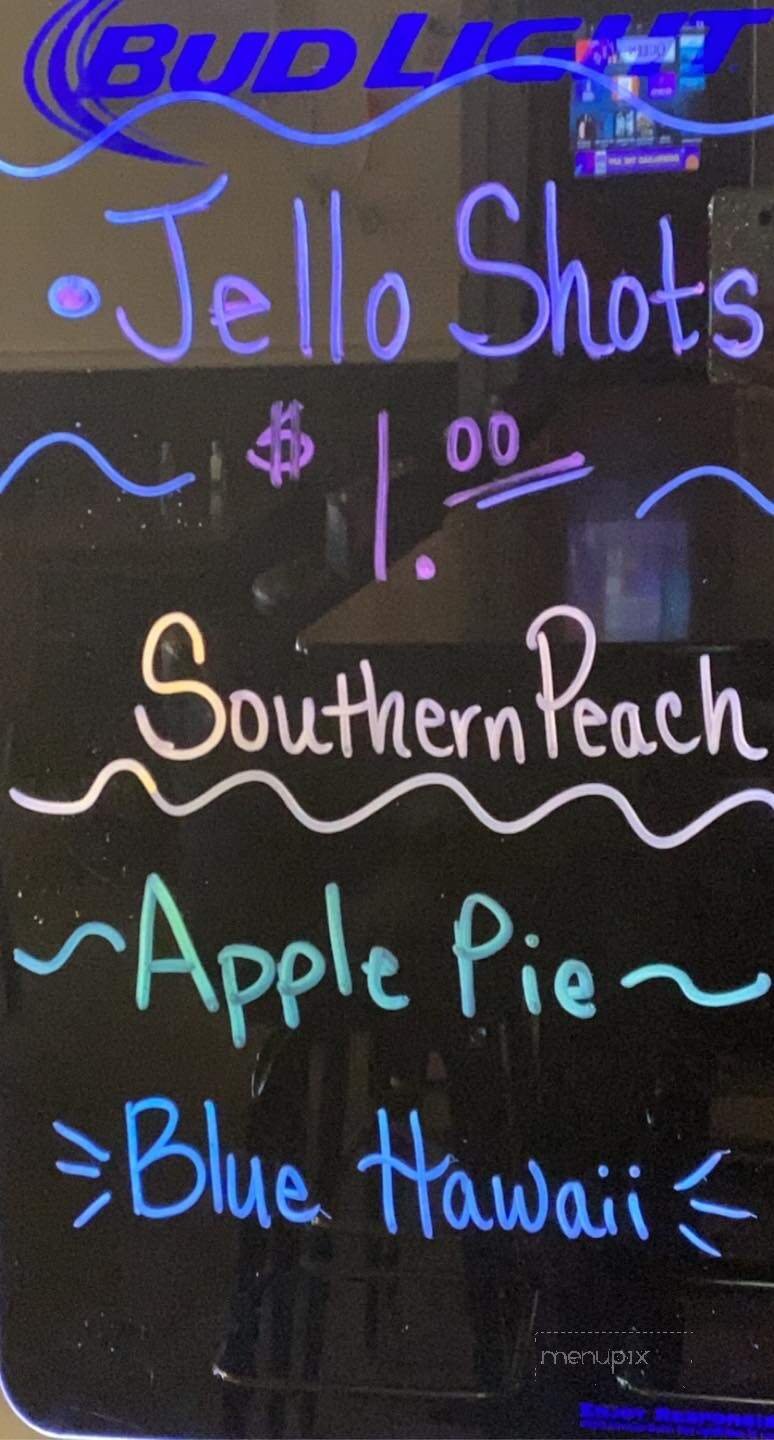 BUD LIGHT
• Jello Shots
$ 1.00
Southern Peach
~ Apple Pie ~
Blue Hawaii
menupix